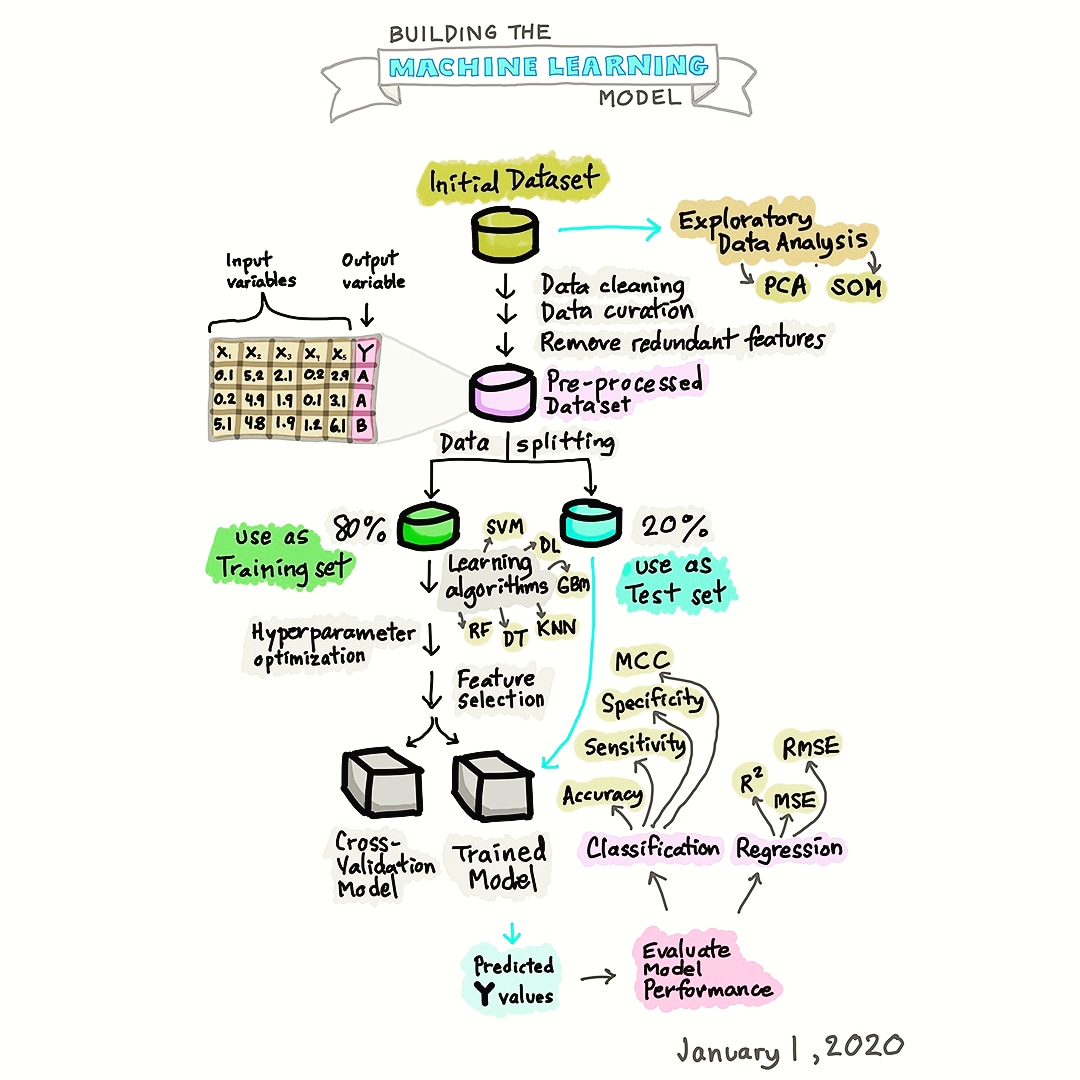 BUILDING THE
MACHINE LEARNING
MODEL
Initial Dataset
Exploratory
Data Analysis
PCA
SOM
Input
variables
Output
variable
Data cleaning
Data curation
Remove redundant features
X₁ X₂ X₃ X₄ X₅ Y
0.1 5.2 2.1 0.2 2.9 A
0.2 4.9 1.9 0.1 3.1 A
5.1 4.8 1.9 1.2 6.1 B
Pre-processed
Dataset
Data splitting
80%
use as
Training set
20%
use as
Test set
Learning
algorithms
SVM
DL
GBm
KNN
DT
RF
Hyperparameter
optimization
Feature
Selection
Cross-
Validation
Model
Trained
Model
MCC
Specificity
Sensitivity
Accuracy
R²
MSE
RMSE
Classification
Regression
Predicted
Y values
Evaluate
Model
Performance
January 1, 2020